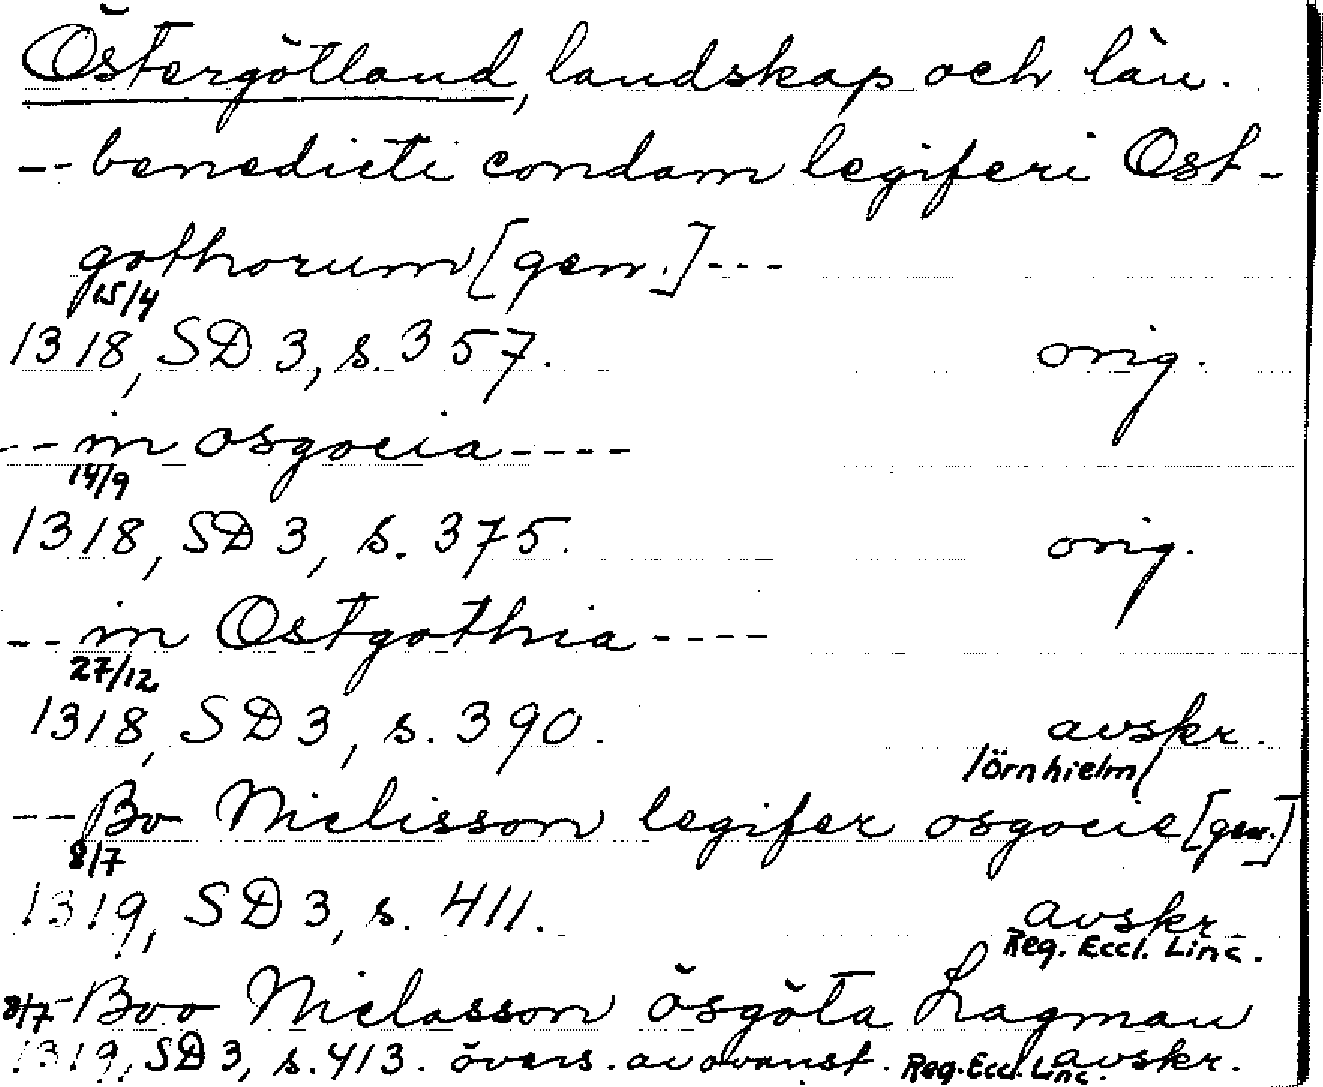 Östergötland, landskap och län.
-- benedicti condam legiferi Ost-
gothorum [gen.] ---
15/4
1318, SD 3, s. 357. orig.
-- in osgocia ----
14/9
1318, SD 3, s. 375. orig.
-- in Ostgothia ----
27/12
1318, SD 3, s. 390. avskr.
/Örnhielm/
-- Bo Niclisson legifer osgocie [gen.]
8/7
1319, SD 3, s. 411. avskr.
Reg. Eccl. Linc.
8/7 - Boo Niclasson ösgöta Lagman
1319, SD 3, s. 413. övers. av ovanst. Reg. Eccl. Linc. avskr.